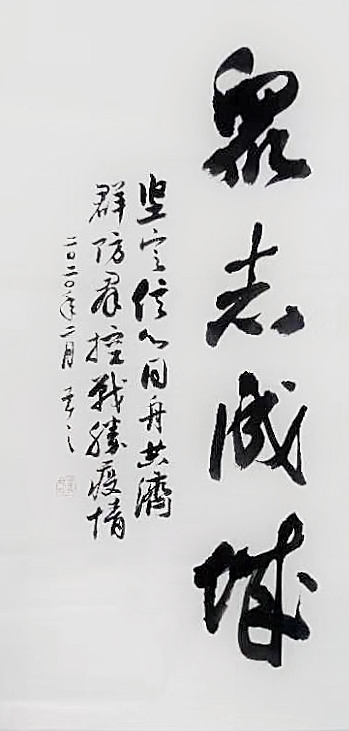 眾志成城
坚定信心同舟共濟
群防群控戰勝疫情
二〇二〇年二月